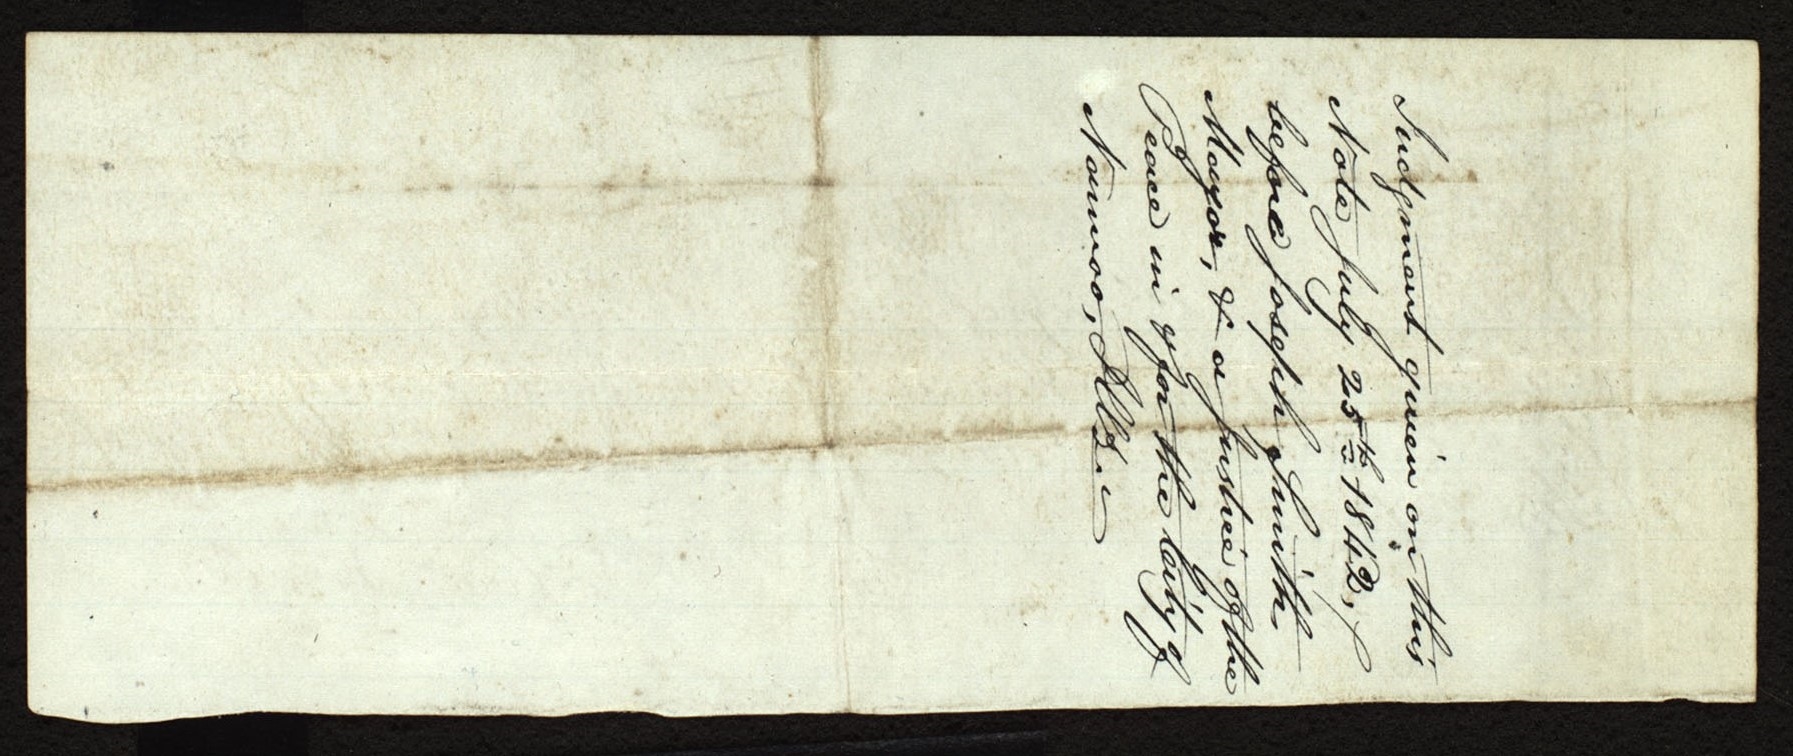 Judgment given on this
Note July 25th 1842,
before Joseph Smith
Mayor, & a Justice of the
Peace in & for the City of
Nauvoo, Ills.